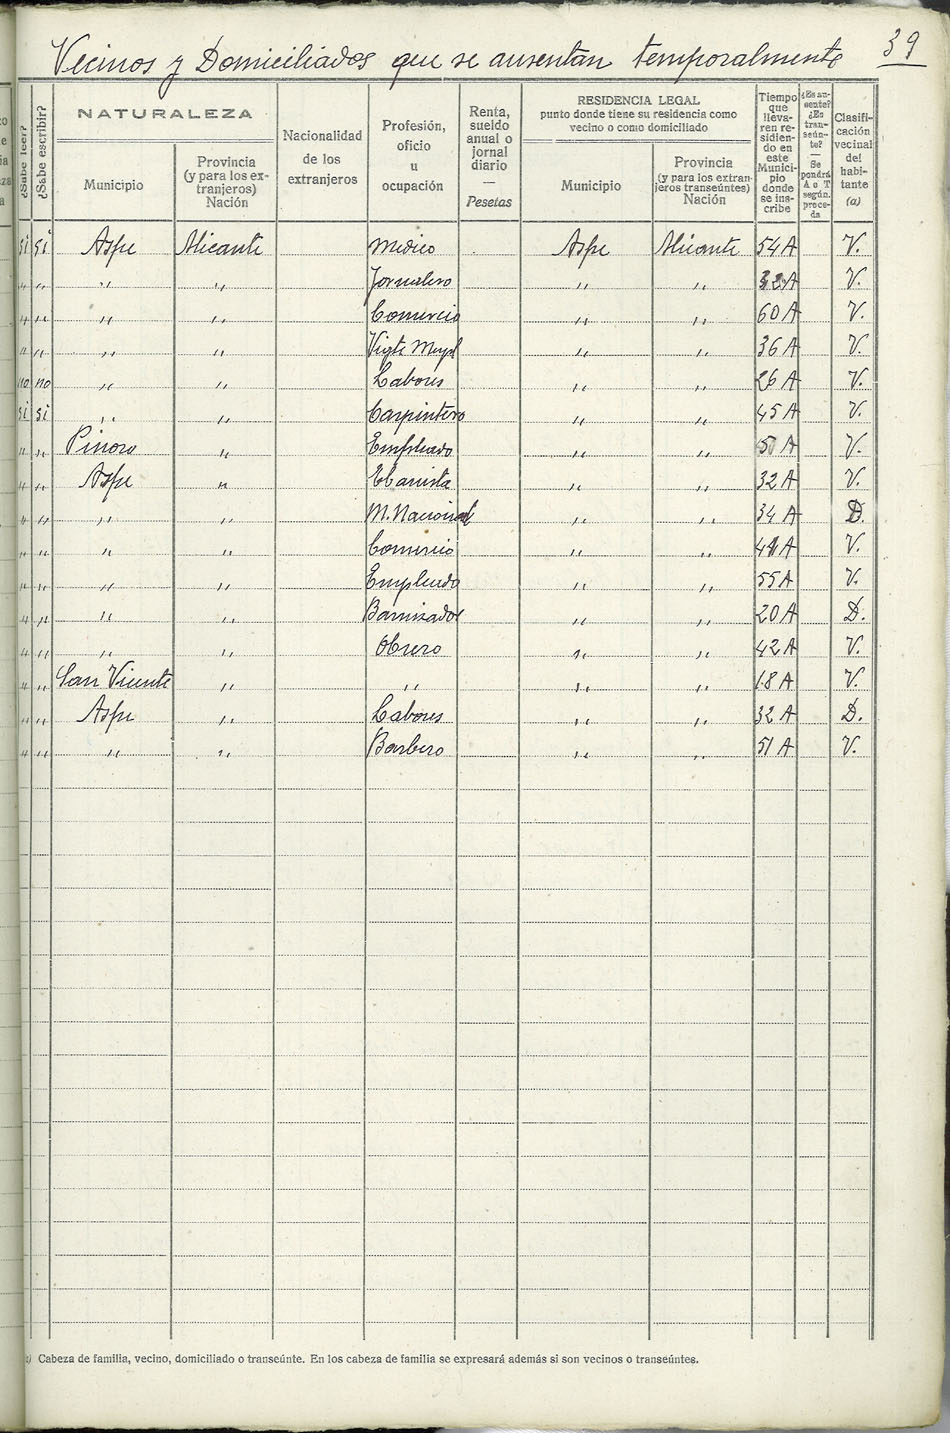 Vecinos y Domiciliados que se ausentan temporalmente 39
¿Sabe leer?
¿Sabe escribir?
NATURALEZA
Municipio
Provincia (y para los extranjeros) Nación
Nacionalidad de los extranjeros
Profesión, oficio u ocupación
Renta, sueldo anual o jornal diario — Pesetas
RESIDENCIA LEGAL
punto donde tiene su residencia como vecino o como domiciliado
Municipio
Provincia (y para los extranjeros transeúntes) Nación
Tiempo que llevaren residiendo en este Municipio donde se inscribe
¿Es ausente? ¿Es transeúnte? — Se pondrá A o T según proceda
Clasificación vecinal del habitante (a)
si si Aspe Alicante Medico Aspe Alicante 54 A V.
" " " " Jornalero " " 32 A V.
" " " " Comercio " " 60 A V.
" " " " Vigte Mpal " " 36 A V.
no no " " Labores " " 26 A V.
si si " " Carpintero " " 45 A V.
" " Pinoso " Empleado " " 50 A V.
" " Aspe " Ebanista " " 32 A V.
" " " " M. Nacional " " 34 A D.
" " " " Comercio " " 41 A V.
" " " " Empleado " " 55 A V.
" " " " Barnizador " " 20 A D.
" " " " Obrero " " 42 A V.
" " San Vicente " " " " 18 A V.
" " Aspe " Labores " " 32 A D.
" " " " Barbero " " 51 A V.
Cabeza de familia, vecino, domiciliado o transeúnte. En los cabeza de familia se expresará además si son vecinos o transeúntes.